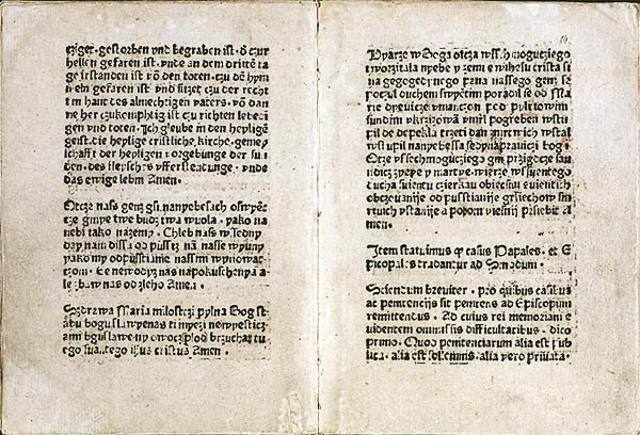 cziget. gestorben vnd begraben ist. õ czur
hellen gefaren ist. vnde an dem drittẽ ta
ge irstanden ist võ den toten. czu dẽ hym
meln gefaren ist vnd sitzet czu der recht
ẽm hant des almechtigen vaters. võ dan
ne her czukomphtig ist czu richten lebedi
gen vnd toten. Jch gleube in den heylige
geist. die heylige cristliche kirche. gemey
schafft der heyligen vorgebunge der su
den. des fleyschs vfferstendunge. vnde
das ewige lebin Amen.
Otcze nass genz gsi nanyebesach oswyẽc
cze gmye twe bucz twa wuola. yako na
nebi tako nazemy. Chleb nass wschedny
day nam dissa od pusscz nã nasse wyuny
yako my odpusstiame nassim wynowac
czom. E newodz nas napokuschenya a
le zbaw nas od zleho Amen.
Szdrawa Maria milostczi pylna Bog st
abu bogus
ami bguslawe ny owocz plod brzucha tu
ego suantego ihus cristus Amen.
16.
Vyarze w Boga otcza wssehmoguczego
tworzitela nyebe y zemi e wihesu crista si
na gegogednego pana nassego genz se
poczul duchem swyetim porodil se od Ma
rie dyewicze vmanczon pod pylatowim
sundim vkrizowã vmrl pogreben wstu
pil de pekla trzeti dan zmrtwich wstal
wstupil nanyebessa sedy napravici bog
Otze wssechmoguczego gm przigdcze sau
ndicz zyve y martve. wierze wssuentego
ducha suientu czierkau obiecsni suientich
obczevanije od pusstienije grsiechow sm
rtuich vstanije a potom viesnij prsiebit A
men.
Item statuimus qz casus Papales. et E
piscopales tradantur ad Smodum.
Sciendum breviter. pro quibus casibus
ac penitencijs sit penitens ad Episcopum
remittendus. Ad cuius rei memoriam e
videntem omnissis difficultatibus. dico
primo. Quod penitenciarum alia est pub
lica. alia est solemnis. alia vero privata.